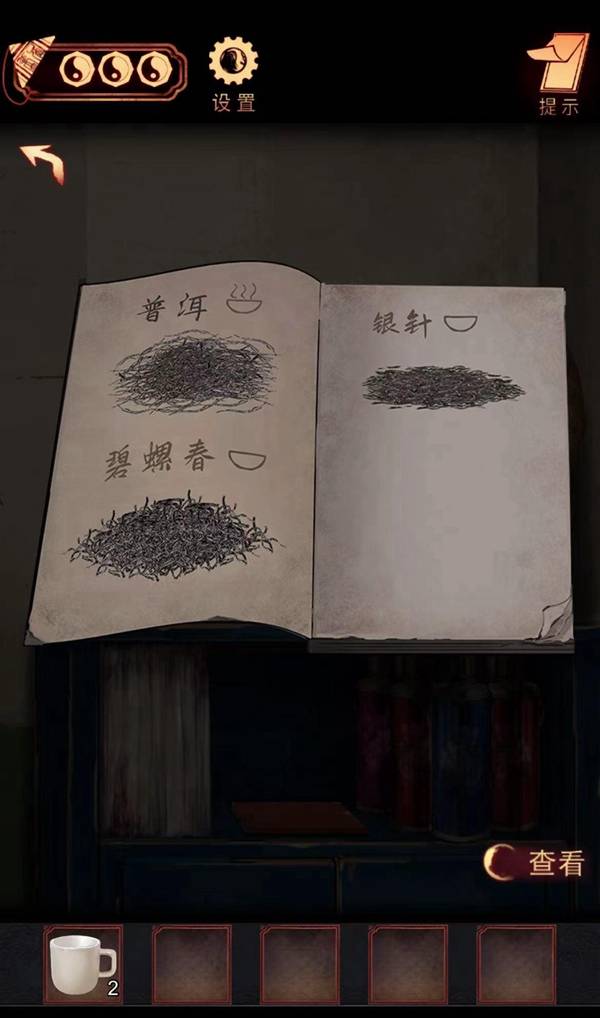 设置
提示
普洱
银针
碧螺春
查看
2